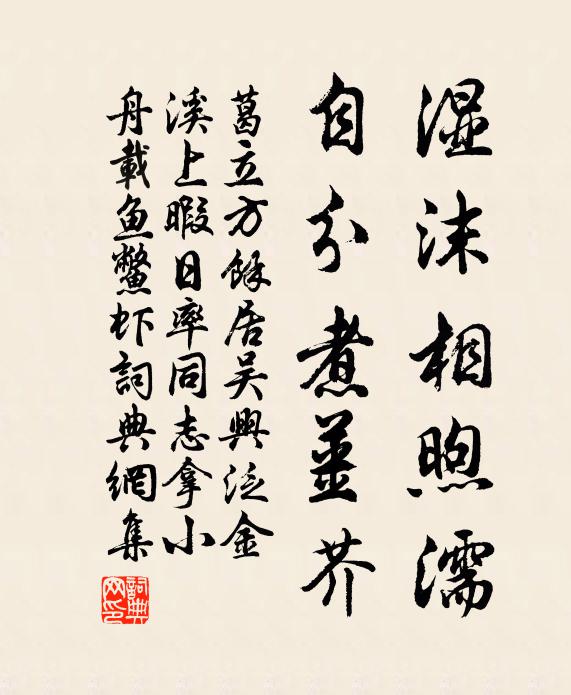 湿沫相煦濡
自分煮薑芥
葛立方餘居吴興泛金
溪上暇日率同志拿小
舟載魚鱉虾詞典網集
詞典
网印